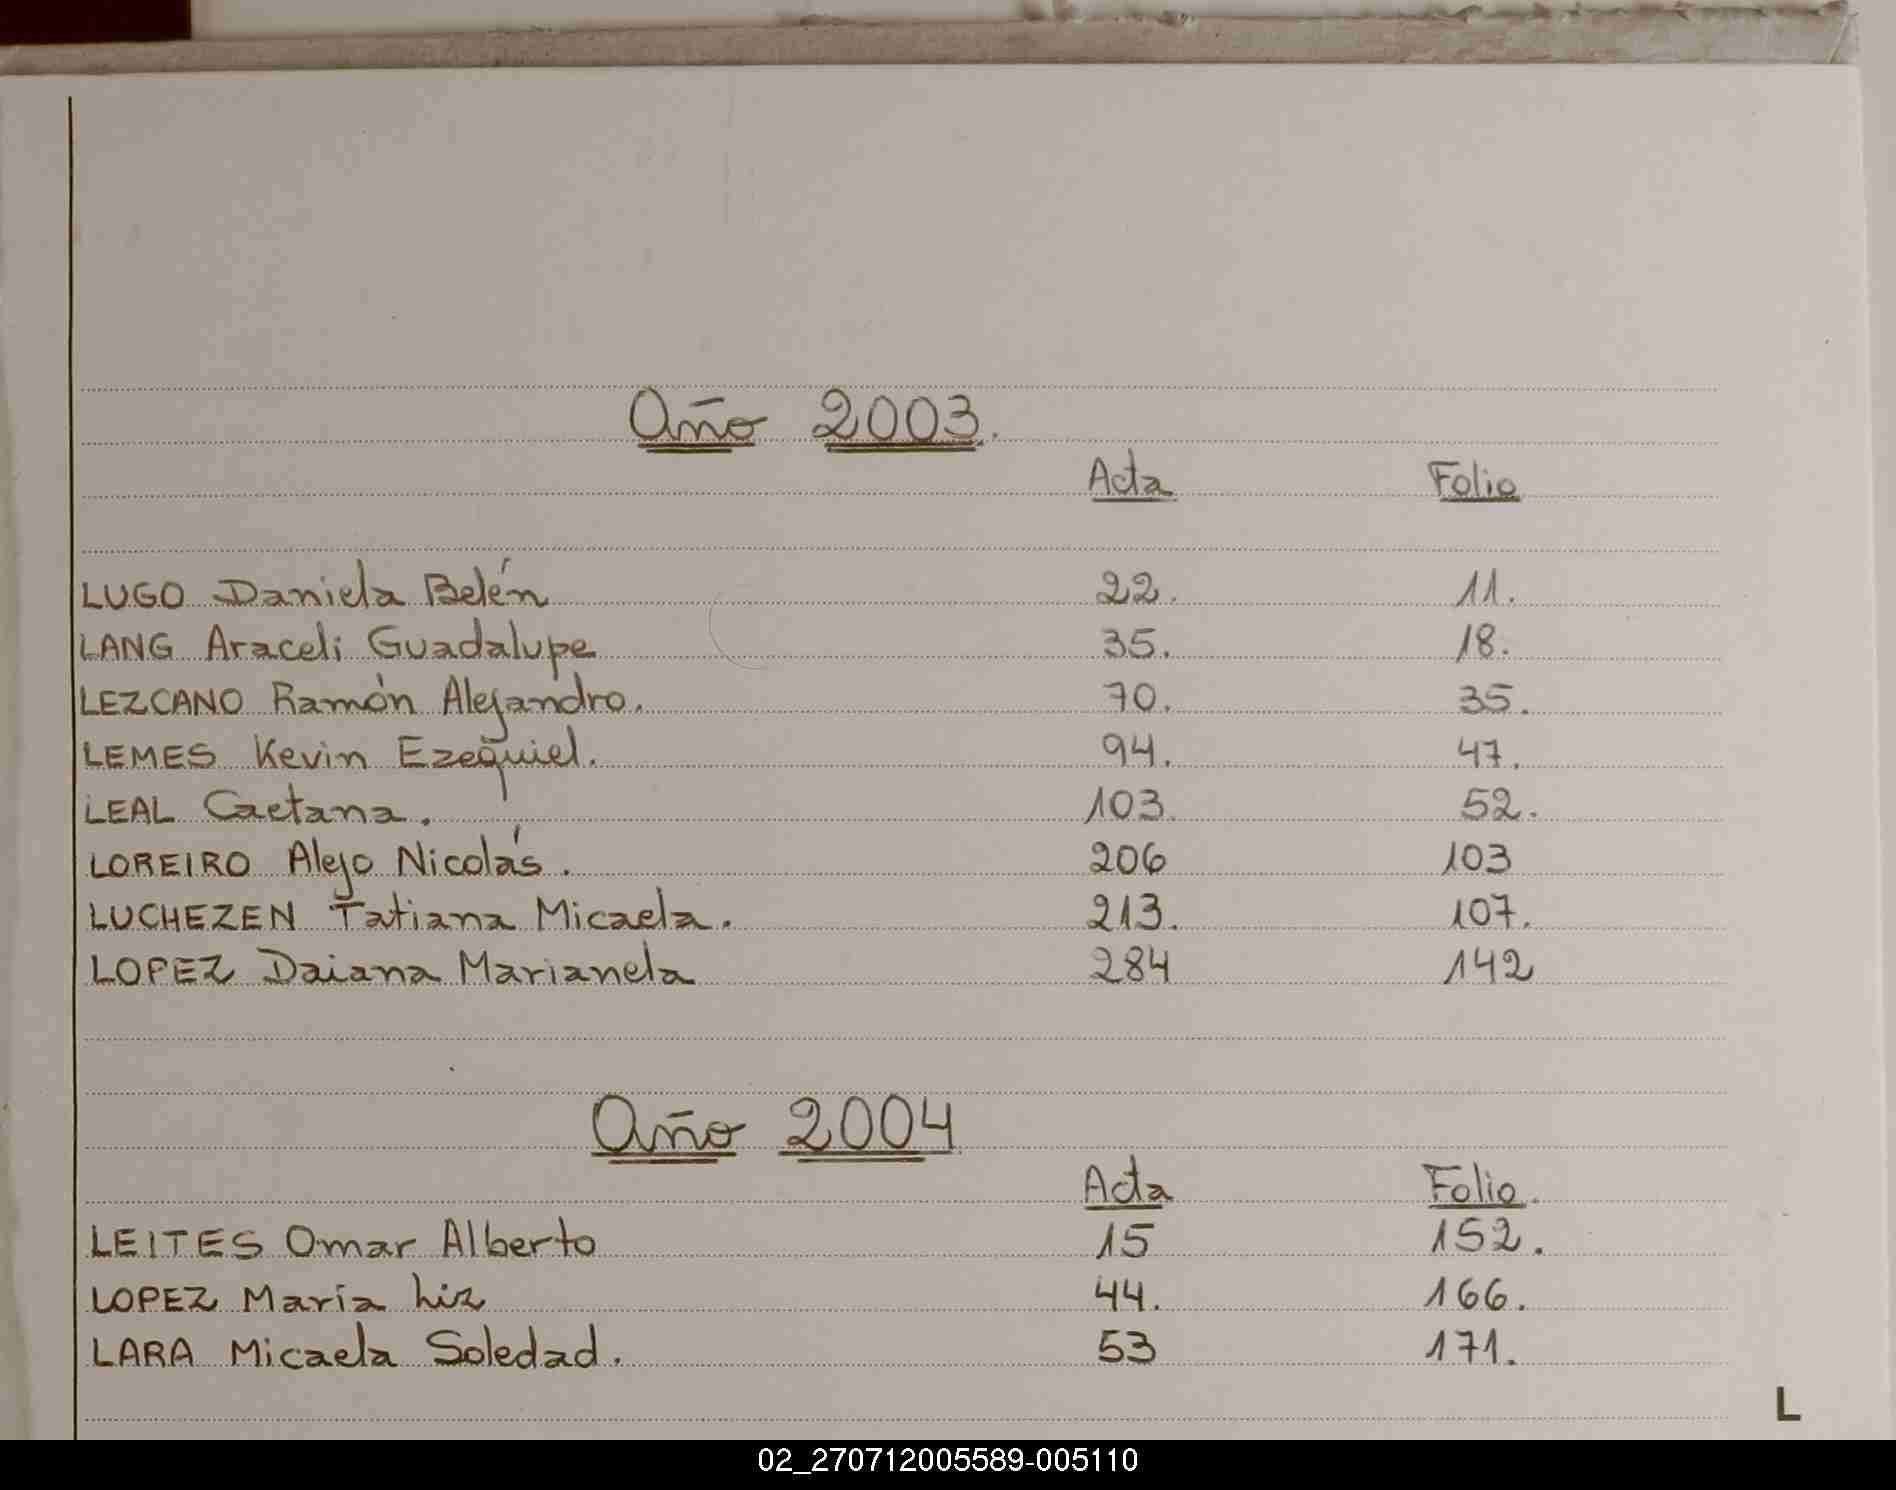 Año 2003.
Acta Folio
LUGO Daniela Belén 22. 11.
LANG Araceli Guadalupe 35. 18.
LEZCANO Ramón Alejandro. 70. 35.
LEMES Kevin Ezequiel. 94. 47.
LEAL Caetana. 103. 52.
LOREIRO Alejo Nicolás. 206 103
LUCHEZEN Tatiana Micaela. 213. 107.
LOPEZ Daiana Marianela 284 142
Año 2004
Acta Folio.
LEITES Omar Alberto 15 152.
LOPEZ María Liz 44. 166.
LARA Micaela Soledad. 53 171.
L
02_270712005589-005110